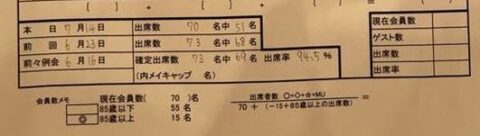 [ ] [ ] [ ]
本日 7月14日 出席数 70名中51名
前回 6月23日 出席数 73名中68名
前々例会 6月16日 確定出席数 73名中69名 出席率 94.5%
(内メイキャップ 名)
現在会員数
ゲスト数
出席数
出席率
会員数メモ 現在会員数 (70)名
85歳以下 55名
◎ 85歳以上 15名
出席者数 〇+◇+☆+MU
70 + (-15+85歳以上の出席数) =